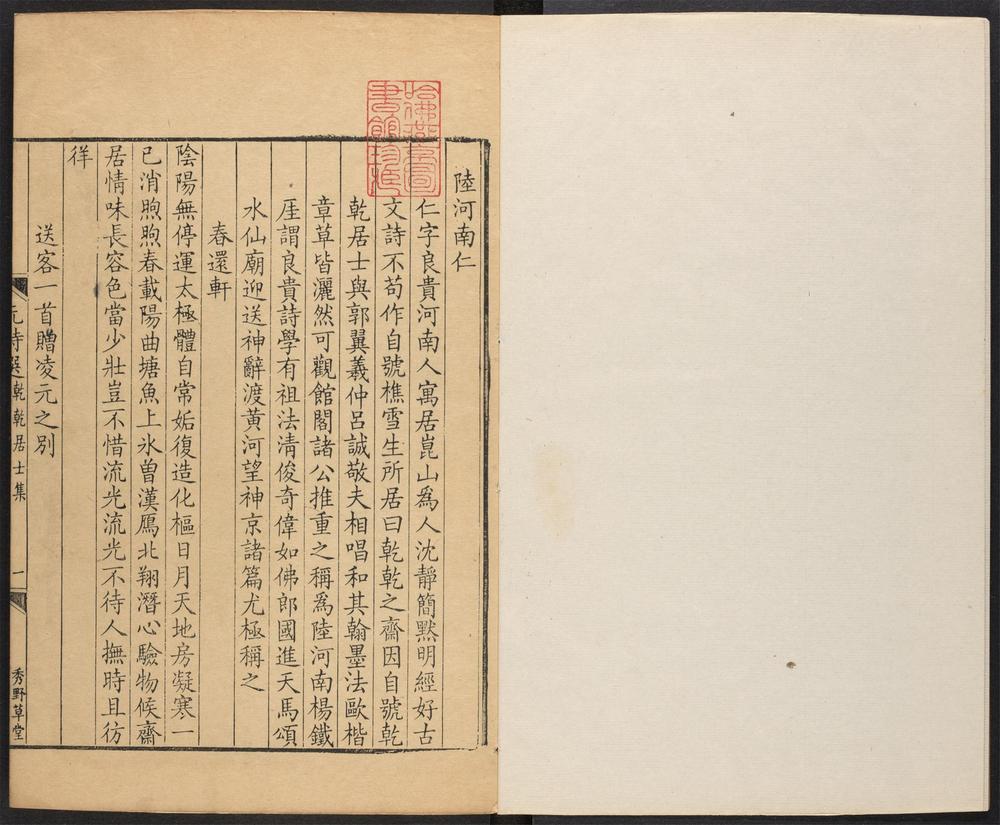 陸河南仁
仁字良貴河南人寓居崑山為人沈靜簡黙明經好古
文詩不苟作自號樵雪生所居曰乾乾之齋因自號乾
乾居士與郭翼羲仲呂誠敬夫相唱和其翰墨法歐楷
章草皆灑然可觀館閣諸公推重之稱為陸河南楊鐵
厓謂良貴詩學有祖法清俊奇偉如佛郎國進天馬頌
水仙廟迎送神辭渡黃河望神京諸篇尤極稱之
春還軒
陰陽無停運太極體自常姤復造化樞日月天地房凝寒一
已消煦煦春載陽曲塘魚上氷曾漢鴈北翔潛心驗物候齋
居情味長容色當少壯豈不惜流光流光不待人撫時且彷
徉
送客一首贈凌元之別
元詩選 乾乾居士集 一 秀野草堂
哈佛燕京圖
書館珍藏